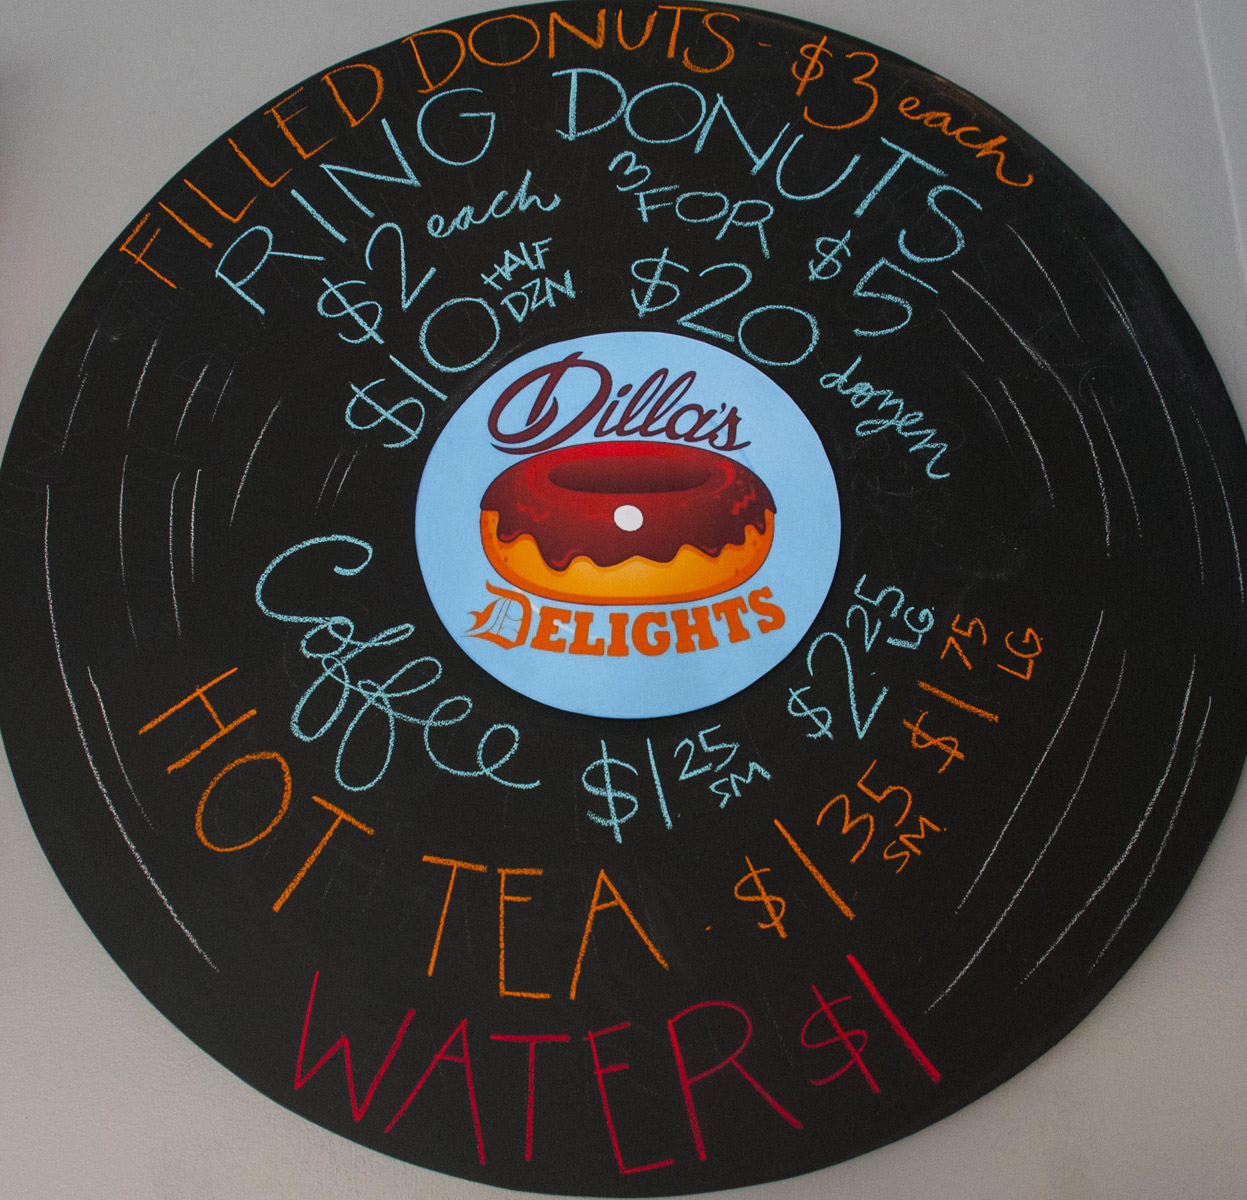 FILLED DONUTS - $3 each
RING DONUTS
$2 each 3 FOR $5
$10 HALF DZN $20 dozen
Dilla's
DELIGHTS
Coffee $1.25 SM $2.25 LG.
HOT TEA - $1.35 SM. $1.75 LG
WATER $1